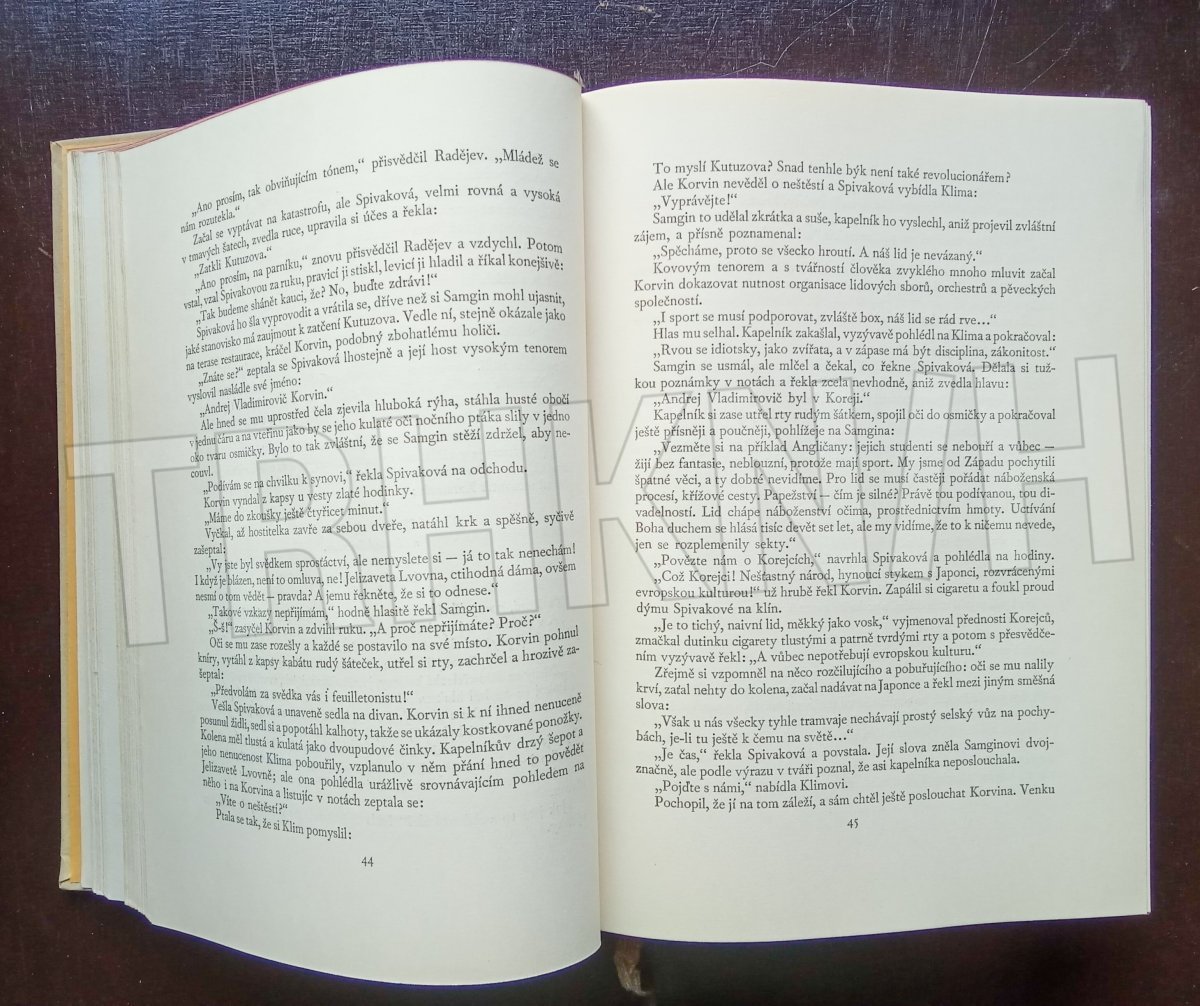 „Ano prosím, tak obviňujícím tónem,“ přisvědčil Radějev. „Mládež se
nám rozutekla.“
Začal se vyptávat na katastrofu, ale Spivaková, velmi rovná a vysoká
v tmavých šatech, zvedla ruce, upravila si účes a řekla:
„Zatkli Kutuzova.“
„Ano prosím, na parníku,“ znovu přisvědčil Radějev a vzdychl. Potom
vstal, vzal Spivakovou za ruku, pravicí ji stiskl, levicí ji hladil a říkal konejšivě:
„Tak budeme shánět kauci, že? No, buďte zdrávi!“
Spivaková ho šla vyprovodit a vrátila se, dříve než si Samgin mohl ujasnit,
jaké stanovisko má zaujmout k zatčení Kutuzova. Vedle ní, stejně okázale jako
na terase restaurace, kráčel Korvin, podobný zbohatlému holiči.
„Znáte se?“ zeptala se Spivaková lhostejně a její host vysokým tenorem
vyslovil nasládle své jméno:
„Andrej Vladimirovič Korvin.“
Ale hned se mu uprostřed čela zjevila hluboká rýha, stáhla husté obočí
v jednu čáru a na vteřinu jako by se jeho kulaté oči nočního ptáka slily v jedno
oko tvaru osmičky. Bylo to tak zvláštní, že se Samgin stěží zdržel, aby ne-
couvl.
„Podívám se na chvilku k synovi,“ řekla Spivaková na odchodu.
Korvin vyndal z kapsy u vesty zlaté hodinky.
„Máme do zkoušky ještě čtyřicet minut.“
Vyčkal, až hostitelka zavře za sebou dveře, natáhl krk a spěšně, syčivě
zašeptal:
„Vy jste byl svědkem sprostáctví, ale nemyslete si — já to tak nenechám!
I když je blázen, není to omluva, ne! Jelizaveta Lvovna, ctihodná dáma, ovšem
nesmí o tom vědět — pravda? A jemu řekněte, že si to odnese.“
„Takové vzkazy nepřijímám,“ hodně hlasitě řekl Samgin.
„Š-š!“ zasyčel Korvin a zdvihl ruku. „A proč nepřijímáte? Proč?“
Oči se mu zase rozešly a každé se postavilo na své místo. Korvin pohnul
kníry, vytáhl z kapsy kabátu rudý šáteček, utřel si rty, zachrčel a hrozivě za-
šeptal:
„Předvolám za svědka vás i feuilletonistu!“
Vešla Spivaková a unaveně sedla na divan. Korvin si k ní ihned nenuceně
posunul židli, sedl si a popotáhl kalhoty, takže se ukázaly kostkované ponožky.
Kolena měl tlustá a kulatá jako dvoupudové činky. Kapelníkův drzý šepot a
jeho nenucenost Klima pobouřily, vzplanulo v něm přání hned to povědět
Jelizavetě Lvovně; ale ona pohlédla urážlivě srovnávajícím pohledem na
něho i na Korvina a listujíc v notách zeptala se:
„Víte o neštěstí?“
Ptala se tak, že si Klim pomyslil:
44
To myslí Kutuzova? Snad tenhle býk není také revolucionářem?
Ale Korvin nevěděl o neštěstí a Spivaková vybídla Klima:
„Vyprávějte!“
Samgin to udělal zkrátka a suše, kapelník ho vyslechl, aniž projevil zvláštní
zájem, a přísně poznamenal:
„Spěcháme, proto se všecko hroutí. A náš lid je nevázaný.“
Kovovým tenorem a s tvářností člověka zvyklého mnoho mluvit začal
Korvin dokazovat nutnost organisace lidových sborů, orchestrů a pěveckých
společností.
„I sport se musí podporovat, zvláště box, náš lid se rád rve…“
Hlas mu selhal. Kapelník zakašlal, vyzývavě pohlédl na Klima a pokračoval:
„Rvou se idiotsky, jako zvířata, a v zápase má být disciplina, zákonitost.“
Samgin se usmál, ale mlčel a čekal, co řekne Spivaková. Dělala si tuž-
kou poznámky v notách a řekla zcela nevhodně, aniž zvedla hlavu:
„Andrej Vladimirovič byl v Koreji.“
Kapelník si zase utřel rty rudým šátkem, spojil oči do osmičky a pokračoval
ještě přísněji a poučněji, pohlížeje na Samgina:
„Vezměte si na příklad Angličany: jejich studenti se nebouří a vůbec —
žijí bez fantasie, neblouzní, protože mají sport. My jsme od Západu pochytili
špatné věci, a ty dobré nevidíme. Pro lid se musí častěji pořádat náboženská
procesí, křížové cesty. Papežství — čím je silné? Právě tou podívanou, tou di-
vadelností. Lid chápe náboženství očima, prostřednictvím hmoty. Uctívání
Boha duchem se hlásá tisíc devět set let, ale my vidíme, že to k ničemu nevede,
jen se rozplemenily sekty.“
„Povězte nám o Korejcích,“ navrhla Spivaková a pohlédla na hodiny.
„Což Korejci! Nešťastný národ, hynoucí stykem s Japonci, rozvrácenými
evropskou kulturou!“ už hrubě řekl Korvin. Zapálil si cigaretu a foukl proud
dýmu Spivakové na klín.
„Je to tichý, naivní lid, měkký jako vosk,“ vyjmenoval přednosti Korejců,
zmačkal dutinku cigarety tlustými a patrně tvrdými rty a potom s přesvědče-
ním vyzývavě řekl: „A vůbec nepotřebují evropskou kulturu.“
Zřejmě si vzpomněl na něco rozčilujícího a pobuřujícího: oči se mu nalily
krví, zaťal nehty do kolena, začal nadávat na Japonce a řekl mezi jiným směšná
slova:
„Však u nás všecky tyhle tramvaje nechávají prostý selský vůz na pochy-
bách, je-li tu ještě k čemu na světě…“
„Je čas,“ řekla Spivaková a povstala. Její slova zněla Samginovi dvoj-
značně, ale podle výrazu v tváři poznal, že asi kapelníka neposlouchala.
„Pojďte s námi,“ nabídla Klimovi.
Pochopil, že jí na tom záleží, a sám chtěl ještě poslouchat Korvina. Venku
45
TRHKNIH